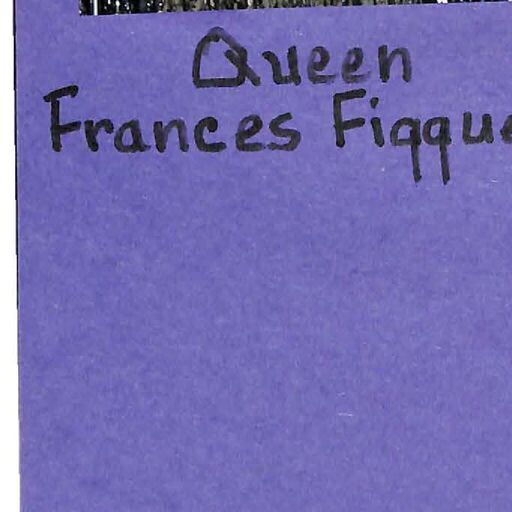 Queen
Frances Fiqque